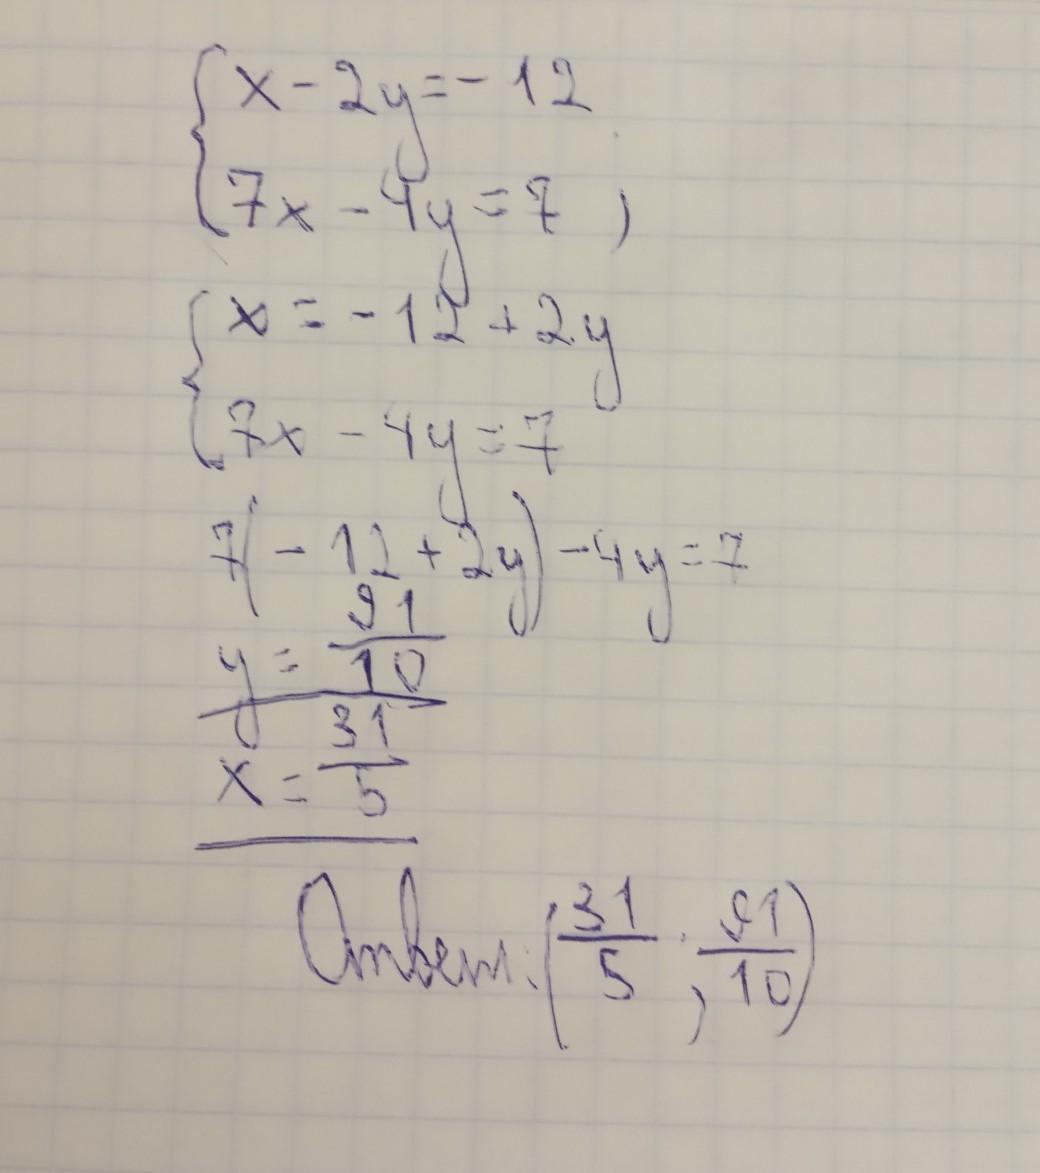 x - 2y = - 12
7x - 4y = 7 ,
x = - 12 + 2y
7x - 4y = 7
7(- 12 + 2y) - 4y = 7
y = 91/10
x = 31/5
Ответ: (31/5 ; 91/10)